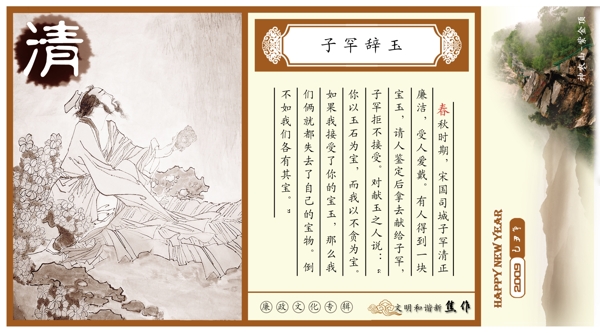 清
子罕辞玉
春秋时期，宋国司城子罕清正
廉洁，受人爱戴。有人得到一块
宝玉，请人鉴定后拿去献给子罕，
子罕拒不接受。对献玉之人说：“
你以玉石为宝，而我以不贪为宝。
如果我接受了你的宝玉，那么我
们俩就都失去了自己的宝物。倒
不如我们各有其宝。”
廉政文化专辑
文明和谐新焦作
神农山·紫金顶
HAPPY NEW YEAR
2009
己丑年